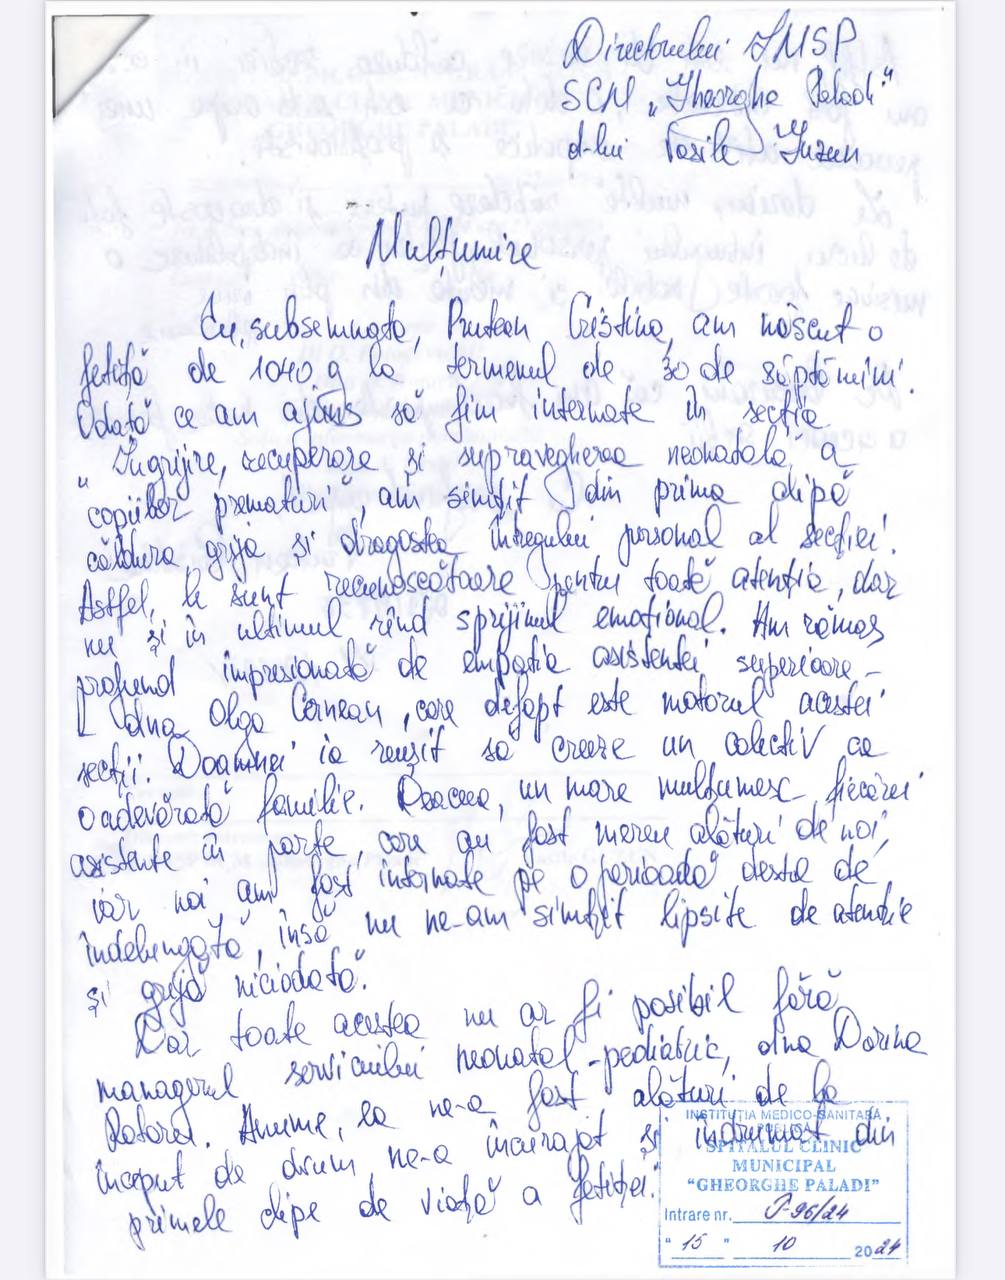 Directorului IMSP
SCM „Gheorghe Paladi"
d-lui Vasile Guzun
Mulțumire
Eu, subsemnata, Prutean Cristina, am născut o
fetiță de 1040 g la termenul de 30 de săptămîni.
Odată ce am ajuns să fim internate în secția
"Îngrijire, recuperare și supravegherea neonatala, a
copiilor prematuri", am simțit din prima clipă
căldura grija și dragostea întregului personal al secției.
Astfel, le sunt recunoscătoare pentru toată atenția, dar
nu și în ultimul rînd sprijinul emoțional. Am rămas
profund impresionată de empatia asistentei superioare -
dna Olga Cernean, care defapt este motorul acestei
secții. Doamnei ia reușit să creeze un colectiv ca
o adevărată familie. Deaceea, un mare mulțumesc fiecărei
asistente în parte care au fost mereu alături de noi,
iar noi am fost internate pe o perioadă destul de
îndelungată, însă nu ne-am simțit lipsite de atenție
și grijă niciodată.
Dar toate acestea nu ar fi posibil fără
managerul serviciului neonatal-pediatric, dna Dorina
Rotaru. Anume, ea ne-a fost alături de la
început de drum, ne-a încurajat și îndrumat din
primele clipe de viață a fetiței.
INSTITUȚIA MEDICO-SANITARĂ
PUBLICĂ
SPITALUL CLINIC
MUNICIPAL
"GHEORGHE PALADI"
Intrare nr. P-96/24
" 15 " 10 2024